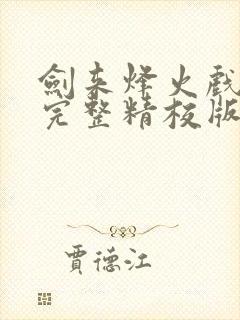 劍来烽火戲
完整精校版
賈德江